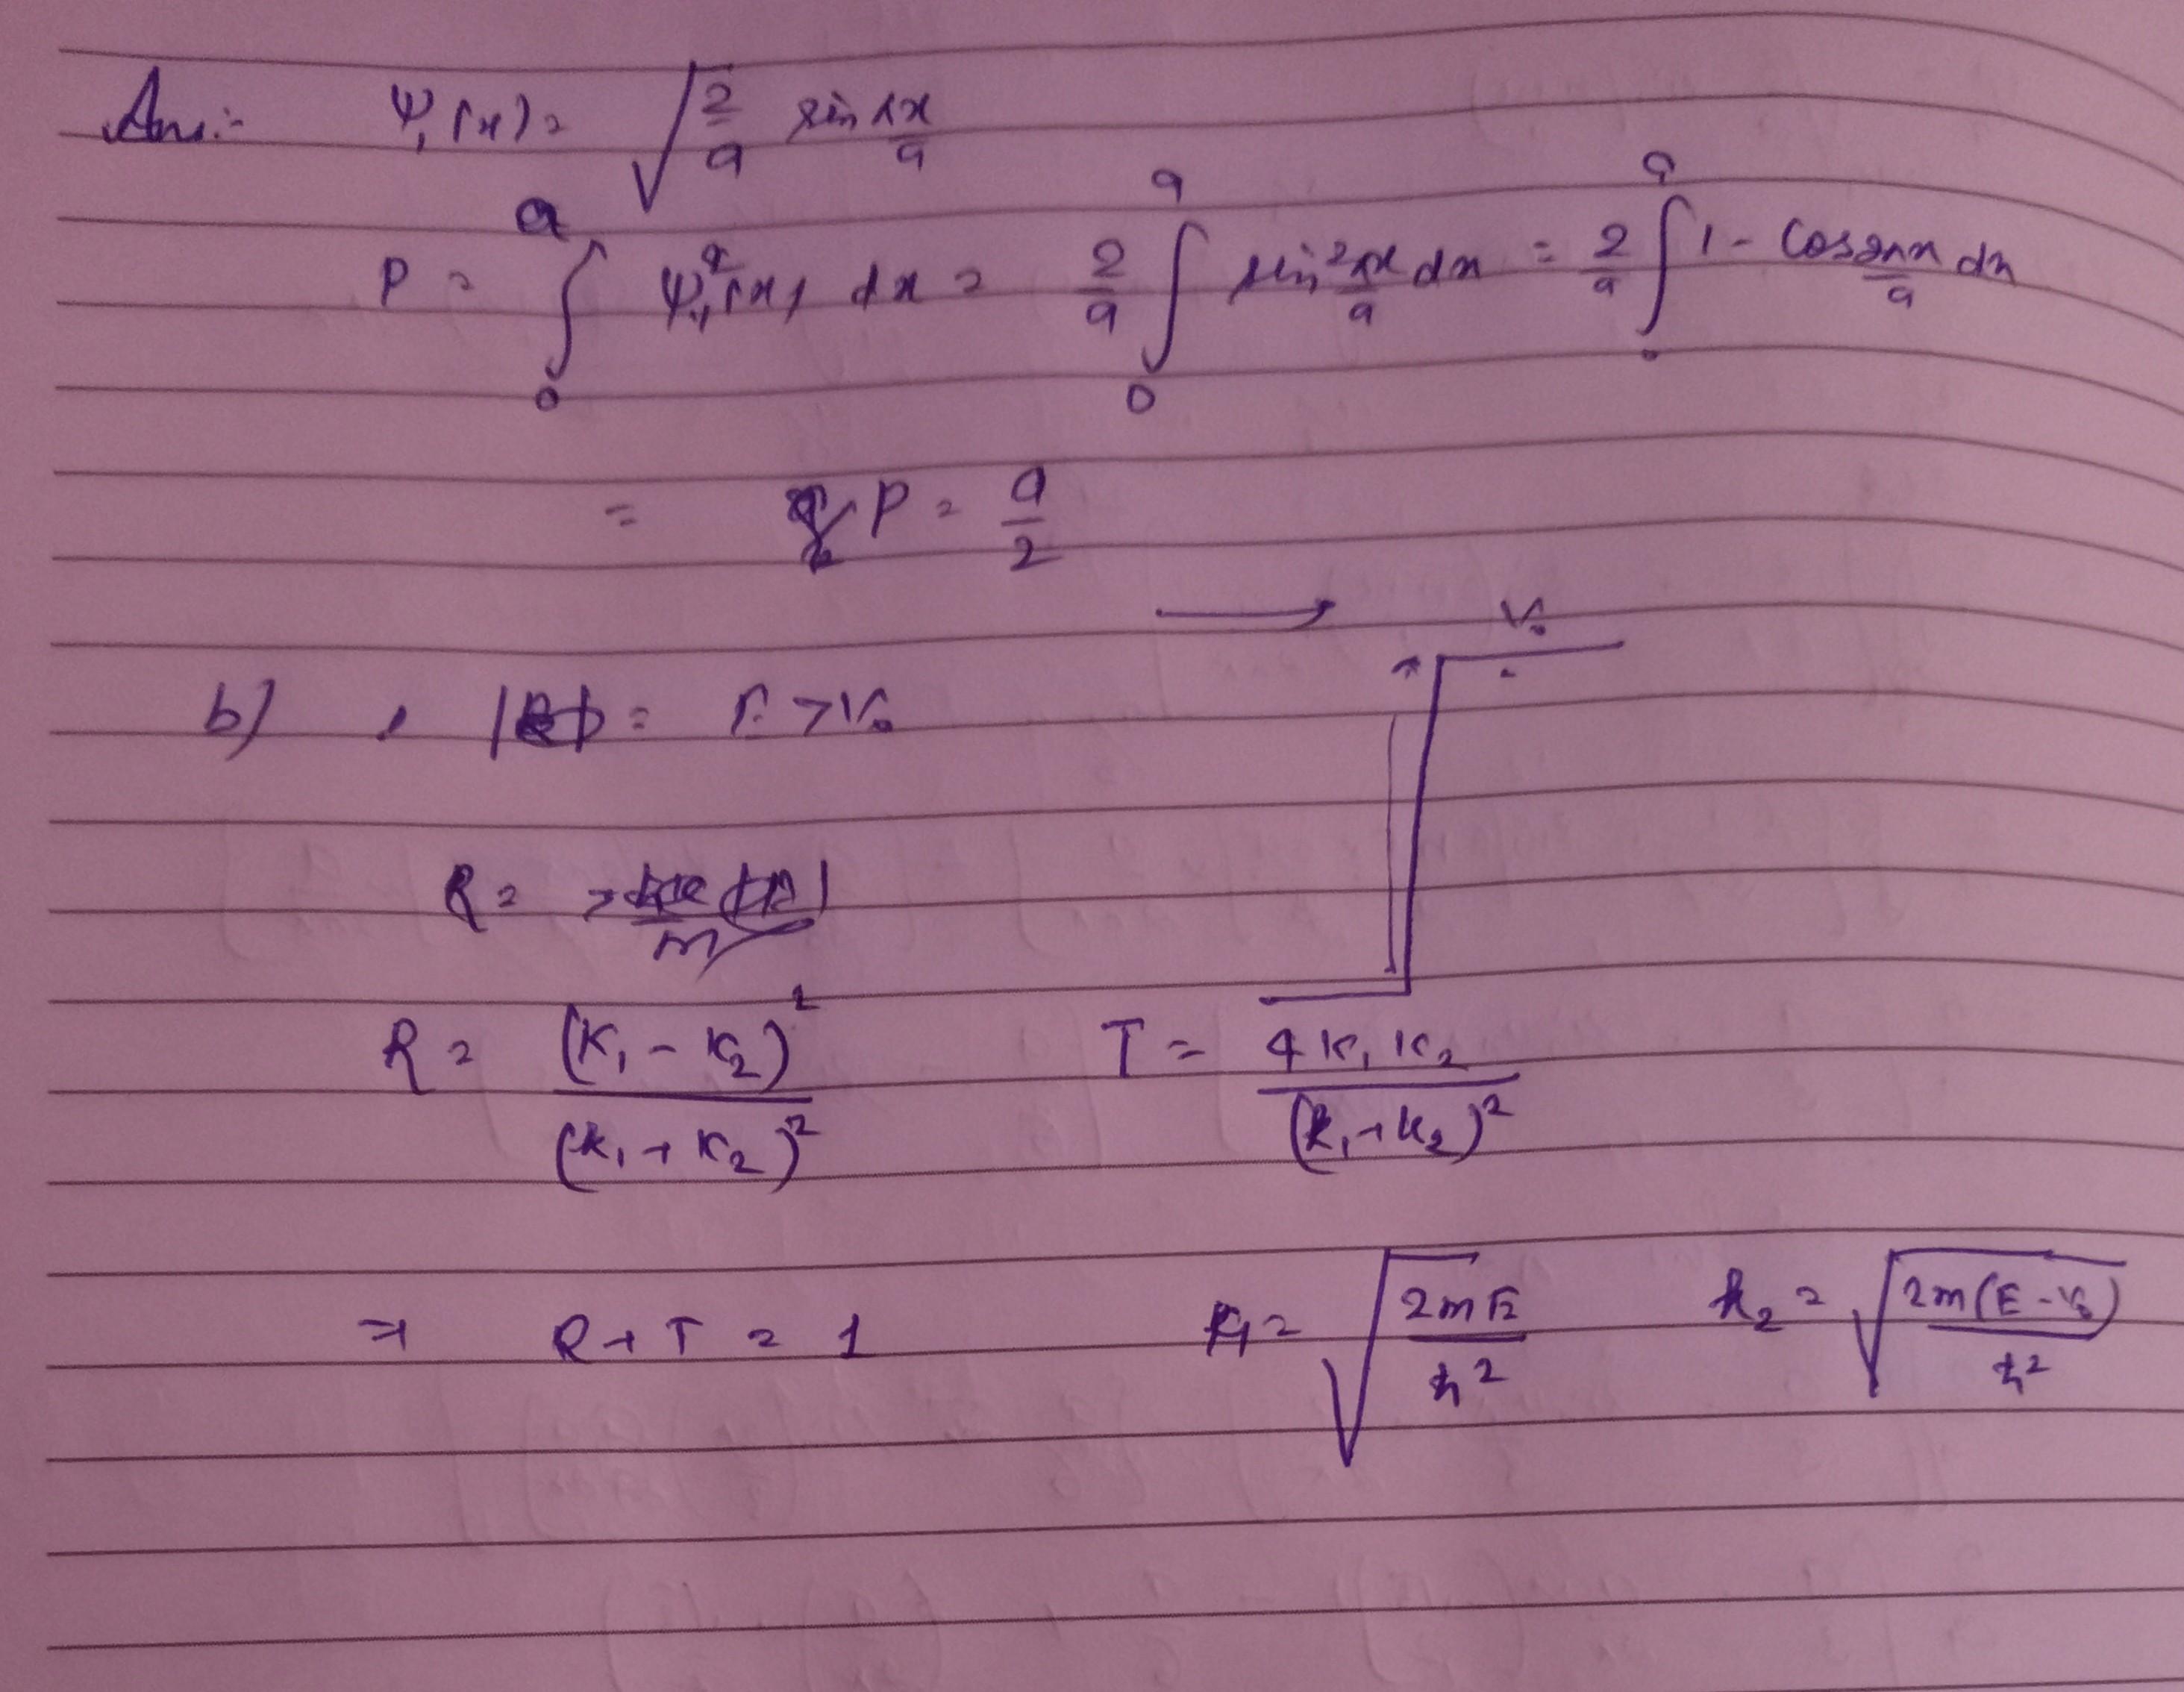 Ans:- ψ₁(x) = √(2/a) sin πx/a
P = ∫₀ᵃ ψ₁²(x) dx = 2/a ∫₀ᵃ sin² πx/a dx = 2/a ∫₀ᵃ 1 - cos 2πx/a dx
= P = a/2
V₀
b) E > V₀
R =
R = (K₁ - K₂)² / (k₁ + K₂)² T = 4K₁K₂ / (k₁ + k₂)²
⇒ R + T = 1 k₁ = √(2mE/ħ²) k₂ = √(2m(E - V₀)/ħ²)